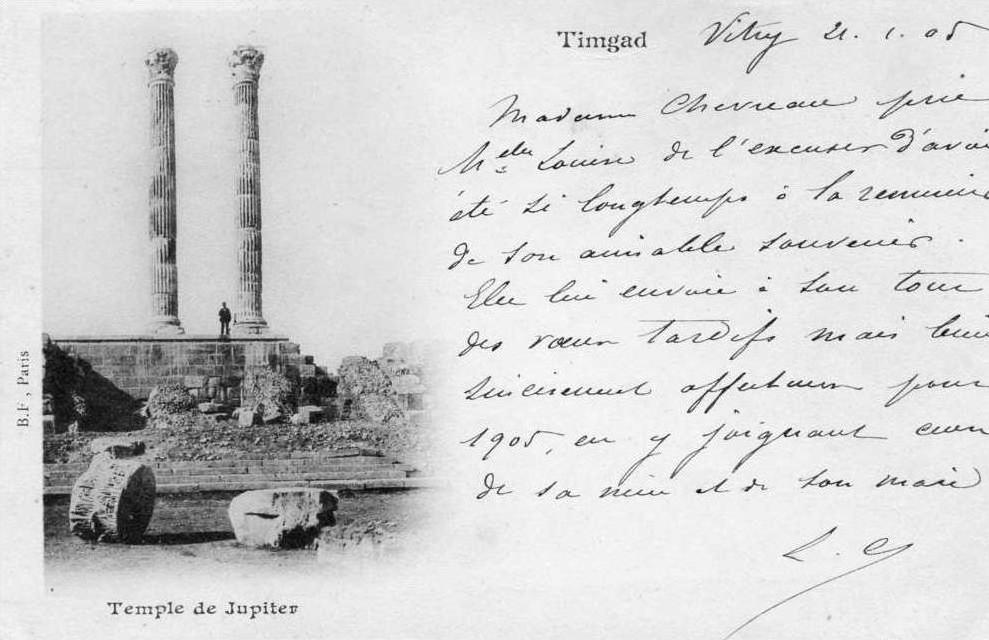 Timgad
Vitry 21.1.05
Madame Chevreau prie
Melle Louise de l'excuser d'avoir
été si longtemps à la remercier
de son aimable souvenir.
Elle lui envoie à son tour
des vœux tardifs mais bien
sincèrement affectueux pour
1905, en y joignant ceux
de sa mère et de son mari
L. C
B.F., Paris
Temple de Jupiter